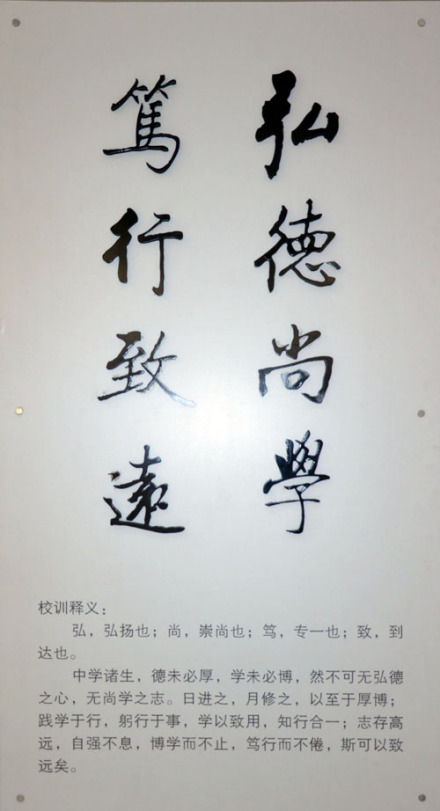 弘德尚學
篤行致遠
校训释义：
弘，弘扬也；尚，崇尚也；笃，专一也；致，到
达也。
中学诸生，德未必厚，学未必博，然不可无弘德
之心，无尚学之志。日进之，月修之，以至于厚博；
践学于行，躬行于事，学以致用，知行合一；志存高
远，自强不息，博学而不止，笃行而不倦，斯可以致
远矣。